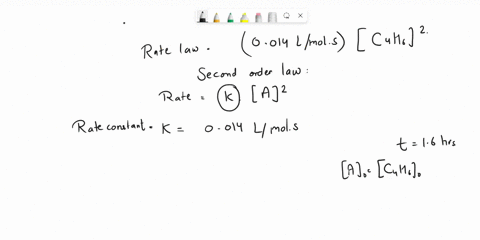 Rate law. (0.014 L/mol.s) [C4H6]2.
Second order law:
Rate = K [A]2
Rate constant. K = 0.014 L/mol.s
t = 1.6 hrs
[A]0= [C4H6]0